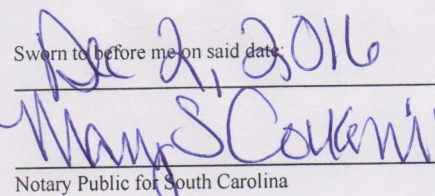 Sworn to before me on said date:
Dec 2, 2016
Mary S
Notary Public for South Carolina